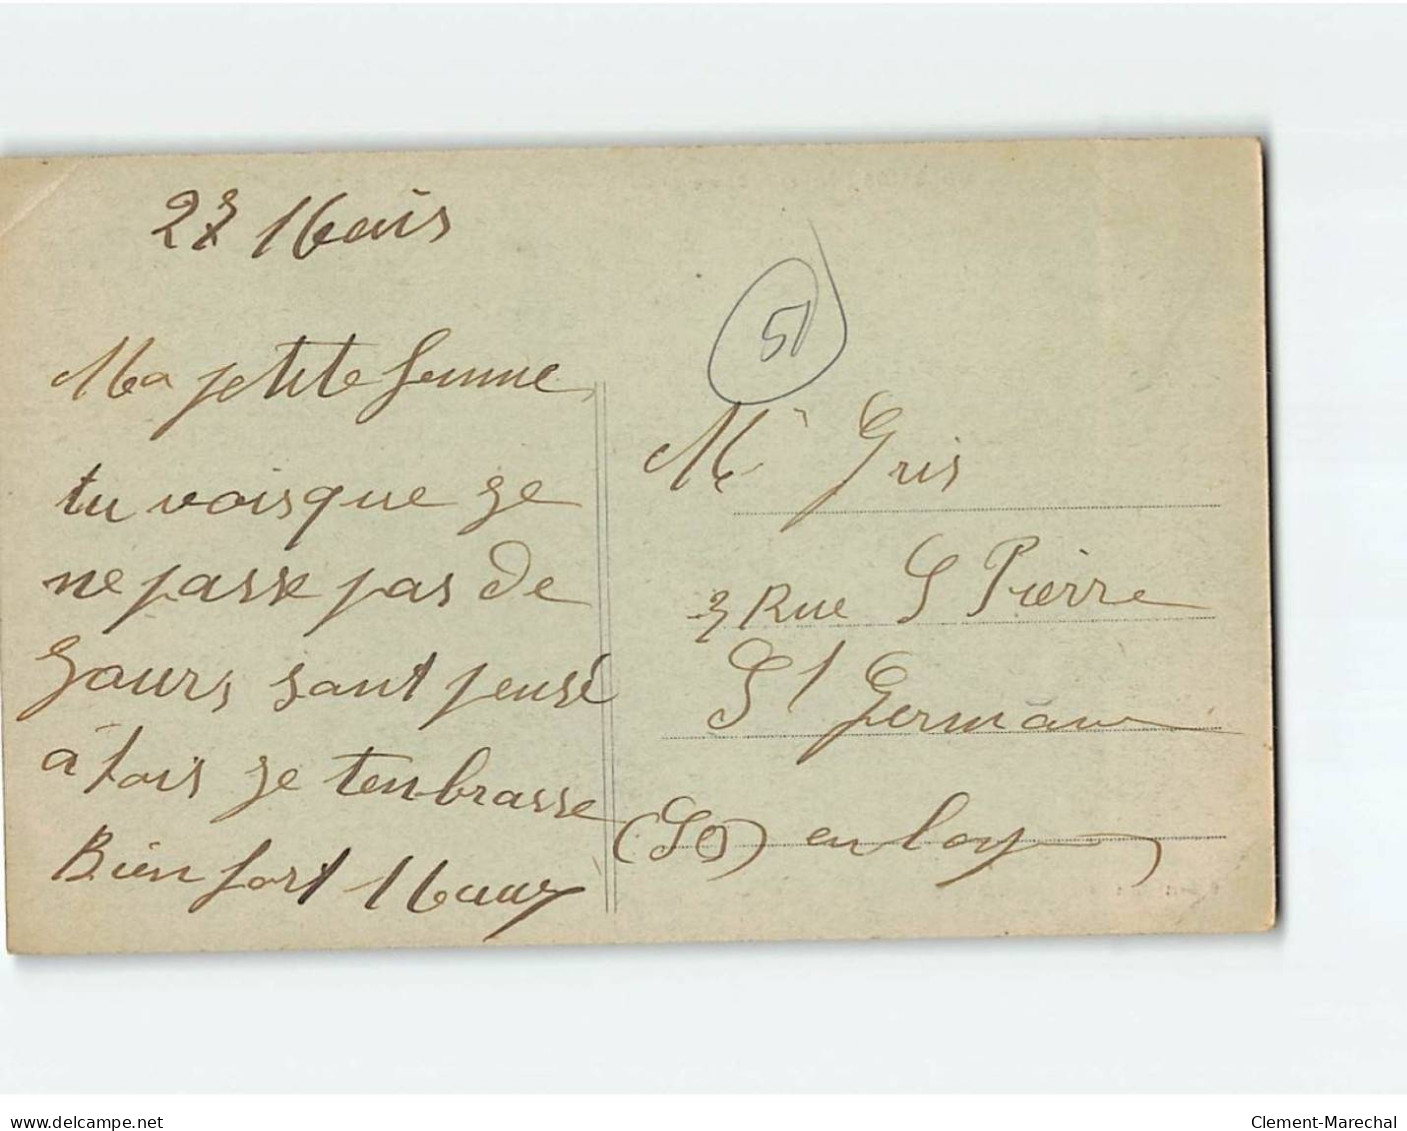 23 Mars
Ma petite femme
tu vois que ge
ne passe pas de
gours sant pensé
a tois ge tenbrasse
Bien fort
51
Mr Gris
3 Rue S Pierre
St Germain
(SO) en lay
www.delcampe.net
Clement-Marechal